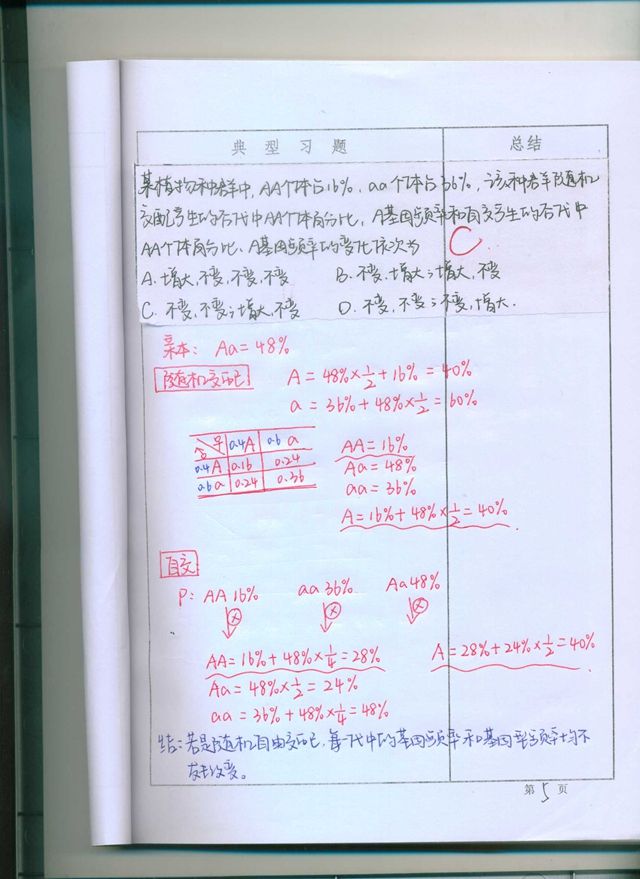 典型习题 总结
某植物种群中,AA个体占16%,aa个体占36%,该种群随机
交配产生的后代中AA个体百分比、A基因频率和自交产生的后代中
AA个体百分比、A基因频率的变化依次为 C
A. 增大,不变;不变,不变 B. 不变,增大;增大,不变
C. 不变,不变;增大,不变 D. 不变,不变;不变,增大.
亲本: Aa=48%
随机交配 A=48%×1/2+16%=40%
a=36%+48%×1/2=60%
♀ 0.4A 0.6a
0.4A 0.16 0.24
0.6a 0.24 0.36
AA=16%
Aa=48%
aa=36%
A=16%+48%×1/2=40%.
自交
P: AA 16% aa 36% Aa 48%
⊗ ⊗ ⊗
AA=16%+48%×1/4=28% A=28%+24%×1/2=40%
Aa=48%×1/2=24%
aa=36%+48%×1/4=48%
结:若是随机自由交配,每一代中的基因频率和基因型频率均不
发生改变。
第5页